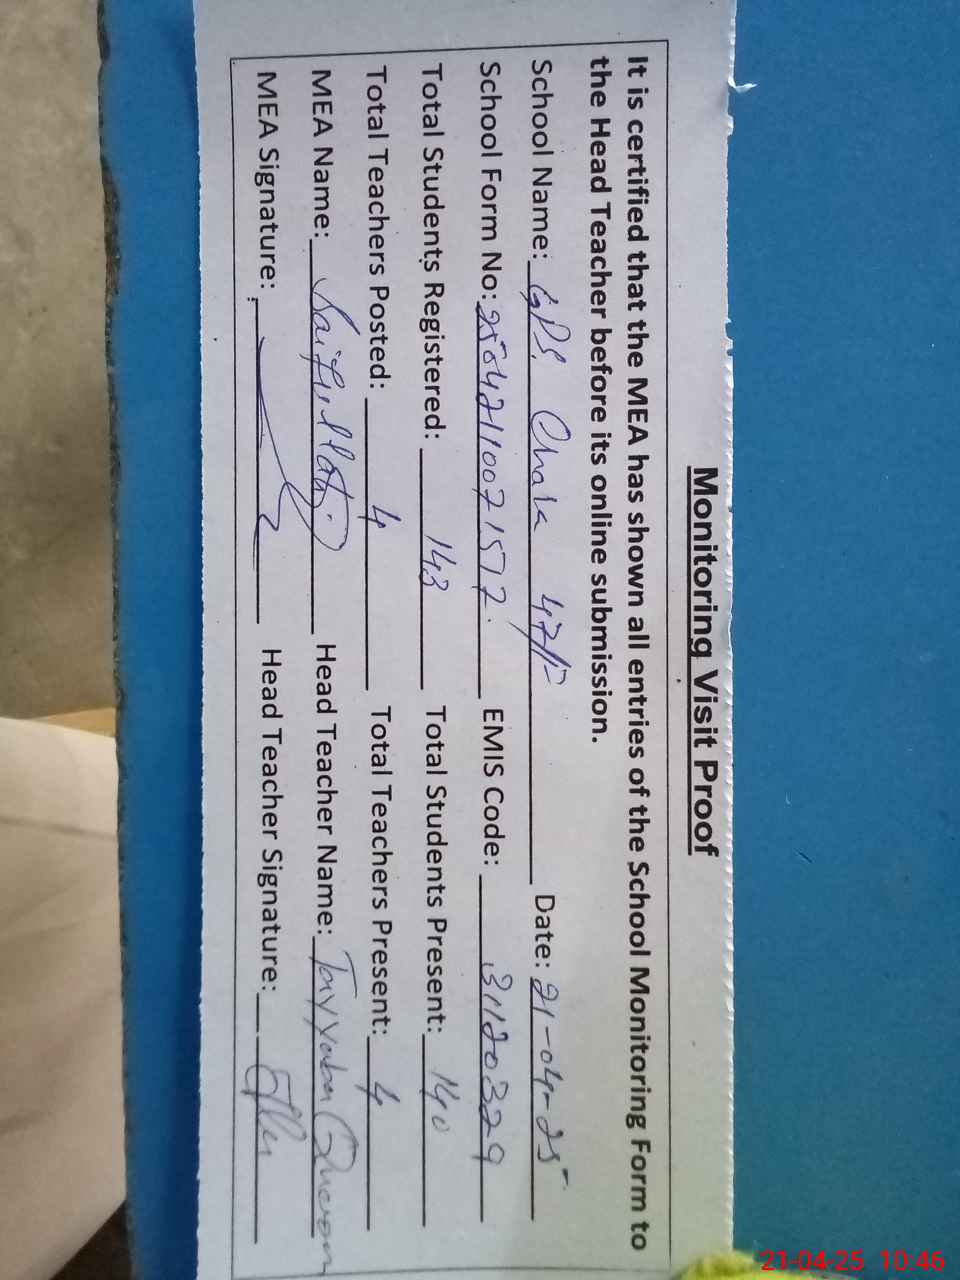 Monitoring Visit Proof
It is certified that the MEA has shown all entries of the School Monitoring Form to
the Head Teacher before its online submission.
School Name: GPS Chak 47/F Date: 21-04-25
School Form No: EMIS Code: 31120329
Total Students Registered: 143 Total Students Present: 140
Total Teachers Posted: 4 Total Teachers Present: 4
MEA Name: Saifullah Head Teacher Name: Tayyaba
MEA Signature: Head Teacher Signature:
21-04-25 10:46